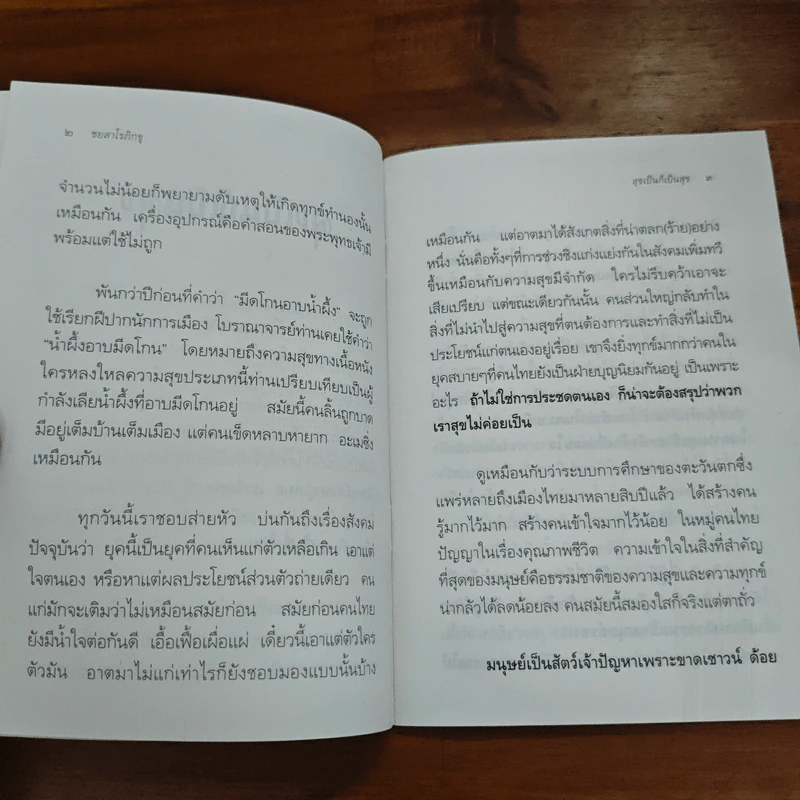 ๒ ชยสาโรภิกขุ
จำนวนไม่น้อยก็พยายามดับเหตุให้เกิดทุกข์ทำนองนั้น
เหมือนกัน เครื่องอุปกรณ์คือคำสอนของพระพุทธเจ้ามี
พร้อมแต่ใช้ไม่ถูก
พันกว่าปีก่อนที่คำว่า “มีดโกนอาบน้ำผึ้ง” จะถูก
ใช้เรียกฝีปากนักการเมือง โบราณาจารย์ท่านเคยใช้คำว่า
“น้ำผึ้งอาบมีดโกน” โดยหมายถึงความสุขทางเนื้อหนัง
ใครหลงใหลความสุขประเภทนี้ท่านเปรียบเทียบเป็นผู้
กำลังเลียน้ำผึ้งที่อาบมีดโกนอยู่ สมัยนี้คนลิ้นถูกบาด
มีอยู่เต็มบ้านเต็มเมือง แต่คนเข็ดหลาบหายาก อะเมซิ่ง
เหมือนกัน
ทุกวันนี้เราชอบส่ายหัว บ่นกันถึงเรื่องสังคม
ปัจจุบันว่า ยุคนี้เป็นยุคที่คนเห็นแก่ตัวเหลือเกิน เอาแต่
ใจตนเอง หรือหาแต่ผลประโยชน์ส่วนตัวถ่ายเดียว คน
แก่มักจะเติมว่าไม่เหมือนสมัยก่อน สมัยก่อนคนไทย
ยังมีน้ำใจต่อกันดี เอื้อเฟื้อเผื่อแผ่ เดี๋ยวนี้เอาแต่ตัวใคร
ตัวมัน อาตมาไม่แก่เท่าไรก็ยังชอบมองแบบนั้นบ้าง
สุขเป็นก็เป็นสุข ๓
เหมือนกัน แต่อาตมาได้สังเกตสิ่งที่น่าตลก(ร้าย)อย่าง
หนึ่ง นั่นคือทั้งๆที่การช่วงชิงแก่งแย่งกันในสังคมเพิ่มทวี
ขึ้นเหมือนกับความสุขมีจำกัด ใครไม่รีบคว้าเอาจะ
เสียเปรียบ แต่ขณะเดียวกันนั้น คนส่วนใหญ่กลับทำใน
สิ่งที่ไม่นำไปสู่ความสุขที่ตนต้องการและทำสิ่งที่ไม่เป็น
ประโยชน์แก่ตนเองอยู่เรื่อย เขาจึงยิ่งทุกข์มากกว่าคนใน
ยุคสบายๆที่คนไทยยังเป็นฝ่ายบุญนิยมกันอยู่ เป็นเพราะ
อะไร ถ้าไม่ใช่การประชดตนเอง ก็น่าจะต้องสรุปว่าพวก
เราสุขไม่ค่อยเป็น
ดูเหมือนกับว่าระบบการศึกษาของตะวันตกซึ่ง
แพร่หลายถึงเมืองไทยมาหลายสิบปีแล้ว ได้สร้างคน
รู้มากไว้มาก สร้างคนเข้าใจมากไว้น้อย ในหมู่คนไทย
ปัญญาในเรื่องคุณภาพชีวิต ความเข้าใจในสิ่งที่สำคัญ
ที่สุดของมนุษย์คือธรรมชาติของความสุขและความทุกข์
น่ากลัวได้ลดน้อยลง คนสมัยนี้สมองใสก็จริงแต่ตาถั่ว
มนุษย์เป็นสัตว์เจ้าปัญหาเพราะขาดเชาวน์ ด้อย